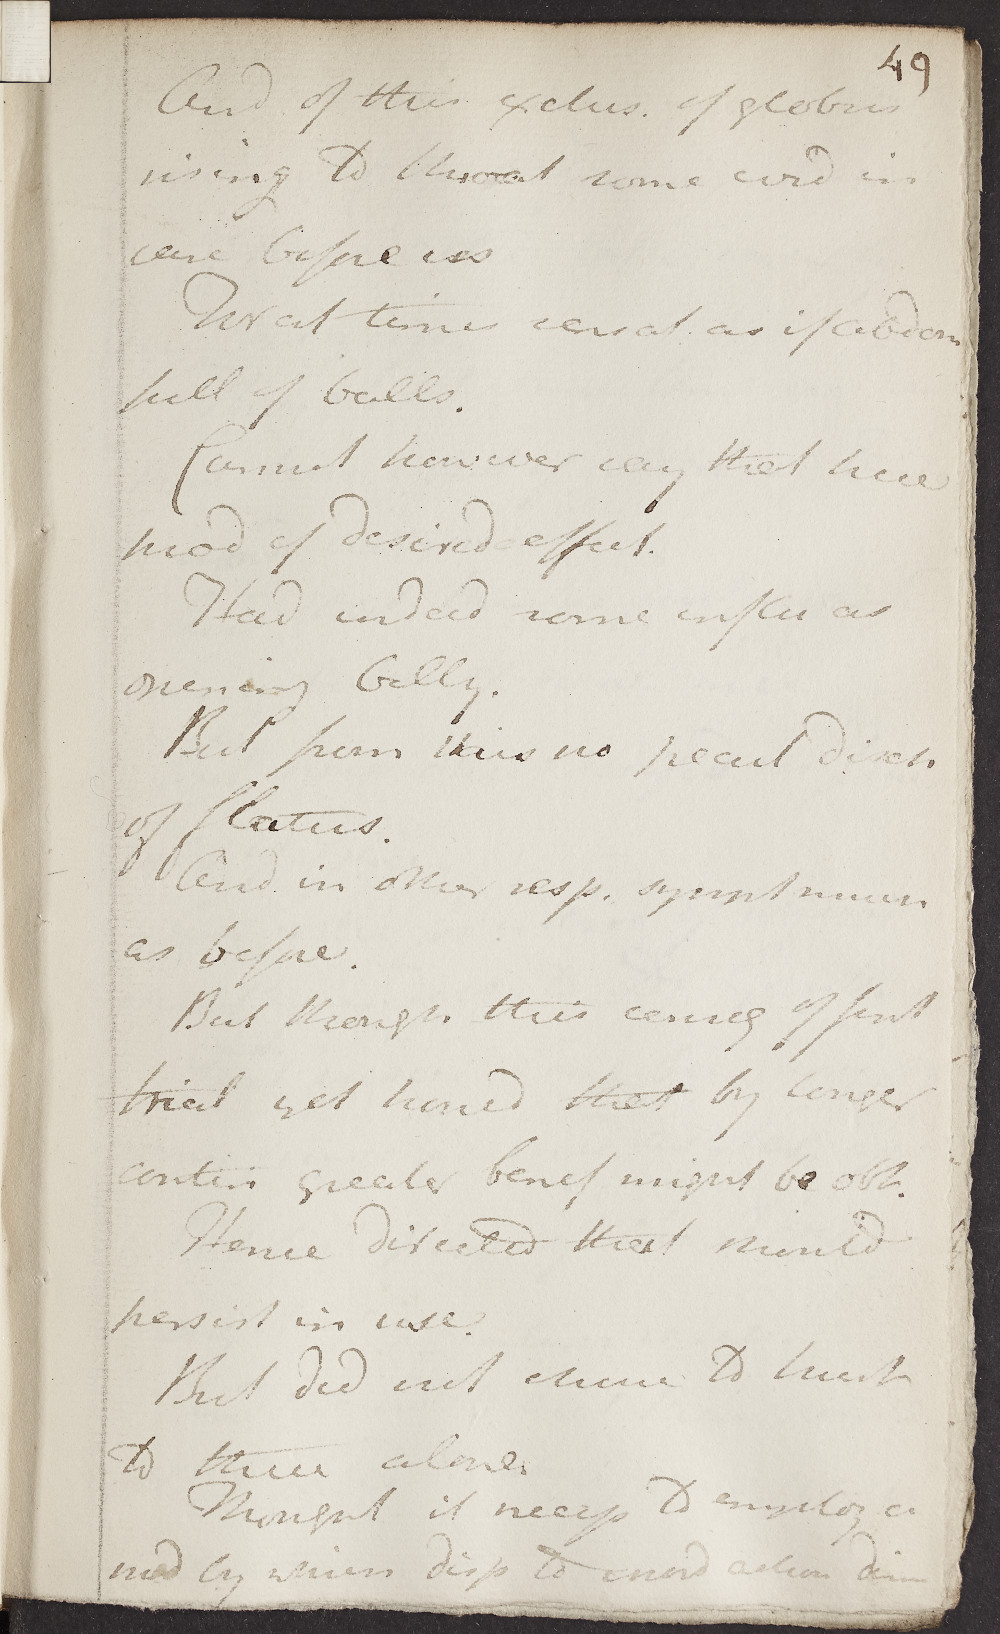 49
And of this exclus. of globus
rising to throat some evid in
case before us
But at times sensat. as if abdom
full of balls.
Cannot however say that here
prod of desired effect.
Had indeed some influ as
opening belly.
But from this no pecul disch
of flatus.
And in other resp. sympt much
as before.
But though this conseq of first
trial yet hoped that by longer
contin greater benef might be obt.
Hence directed that should
persist in use.
But did not chuse to trust
to these alone
Thought it necess to employ a
med by which disp to inord action dim